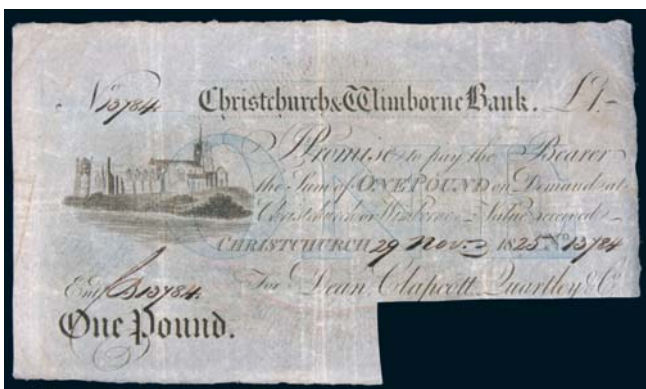 No 13784 Christchurch & Wimborne Bank. £1.-
I Promise to pay the Bearer
the Sum of ONE POUND on Demand at
Christchurch or Wimborne Value received
CHRISTCHURCH 29 Nov. 1825 No 13784
Entd 13784. For Dean, Clapcott, Quartley & Co
One Pound.
ONE